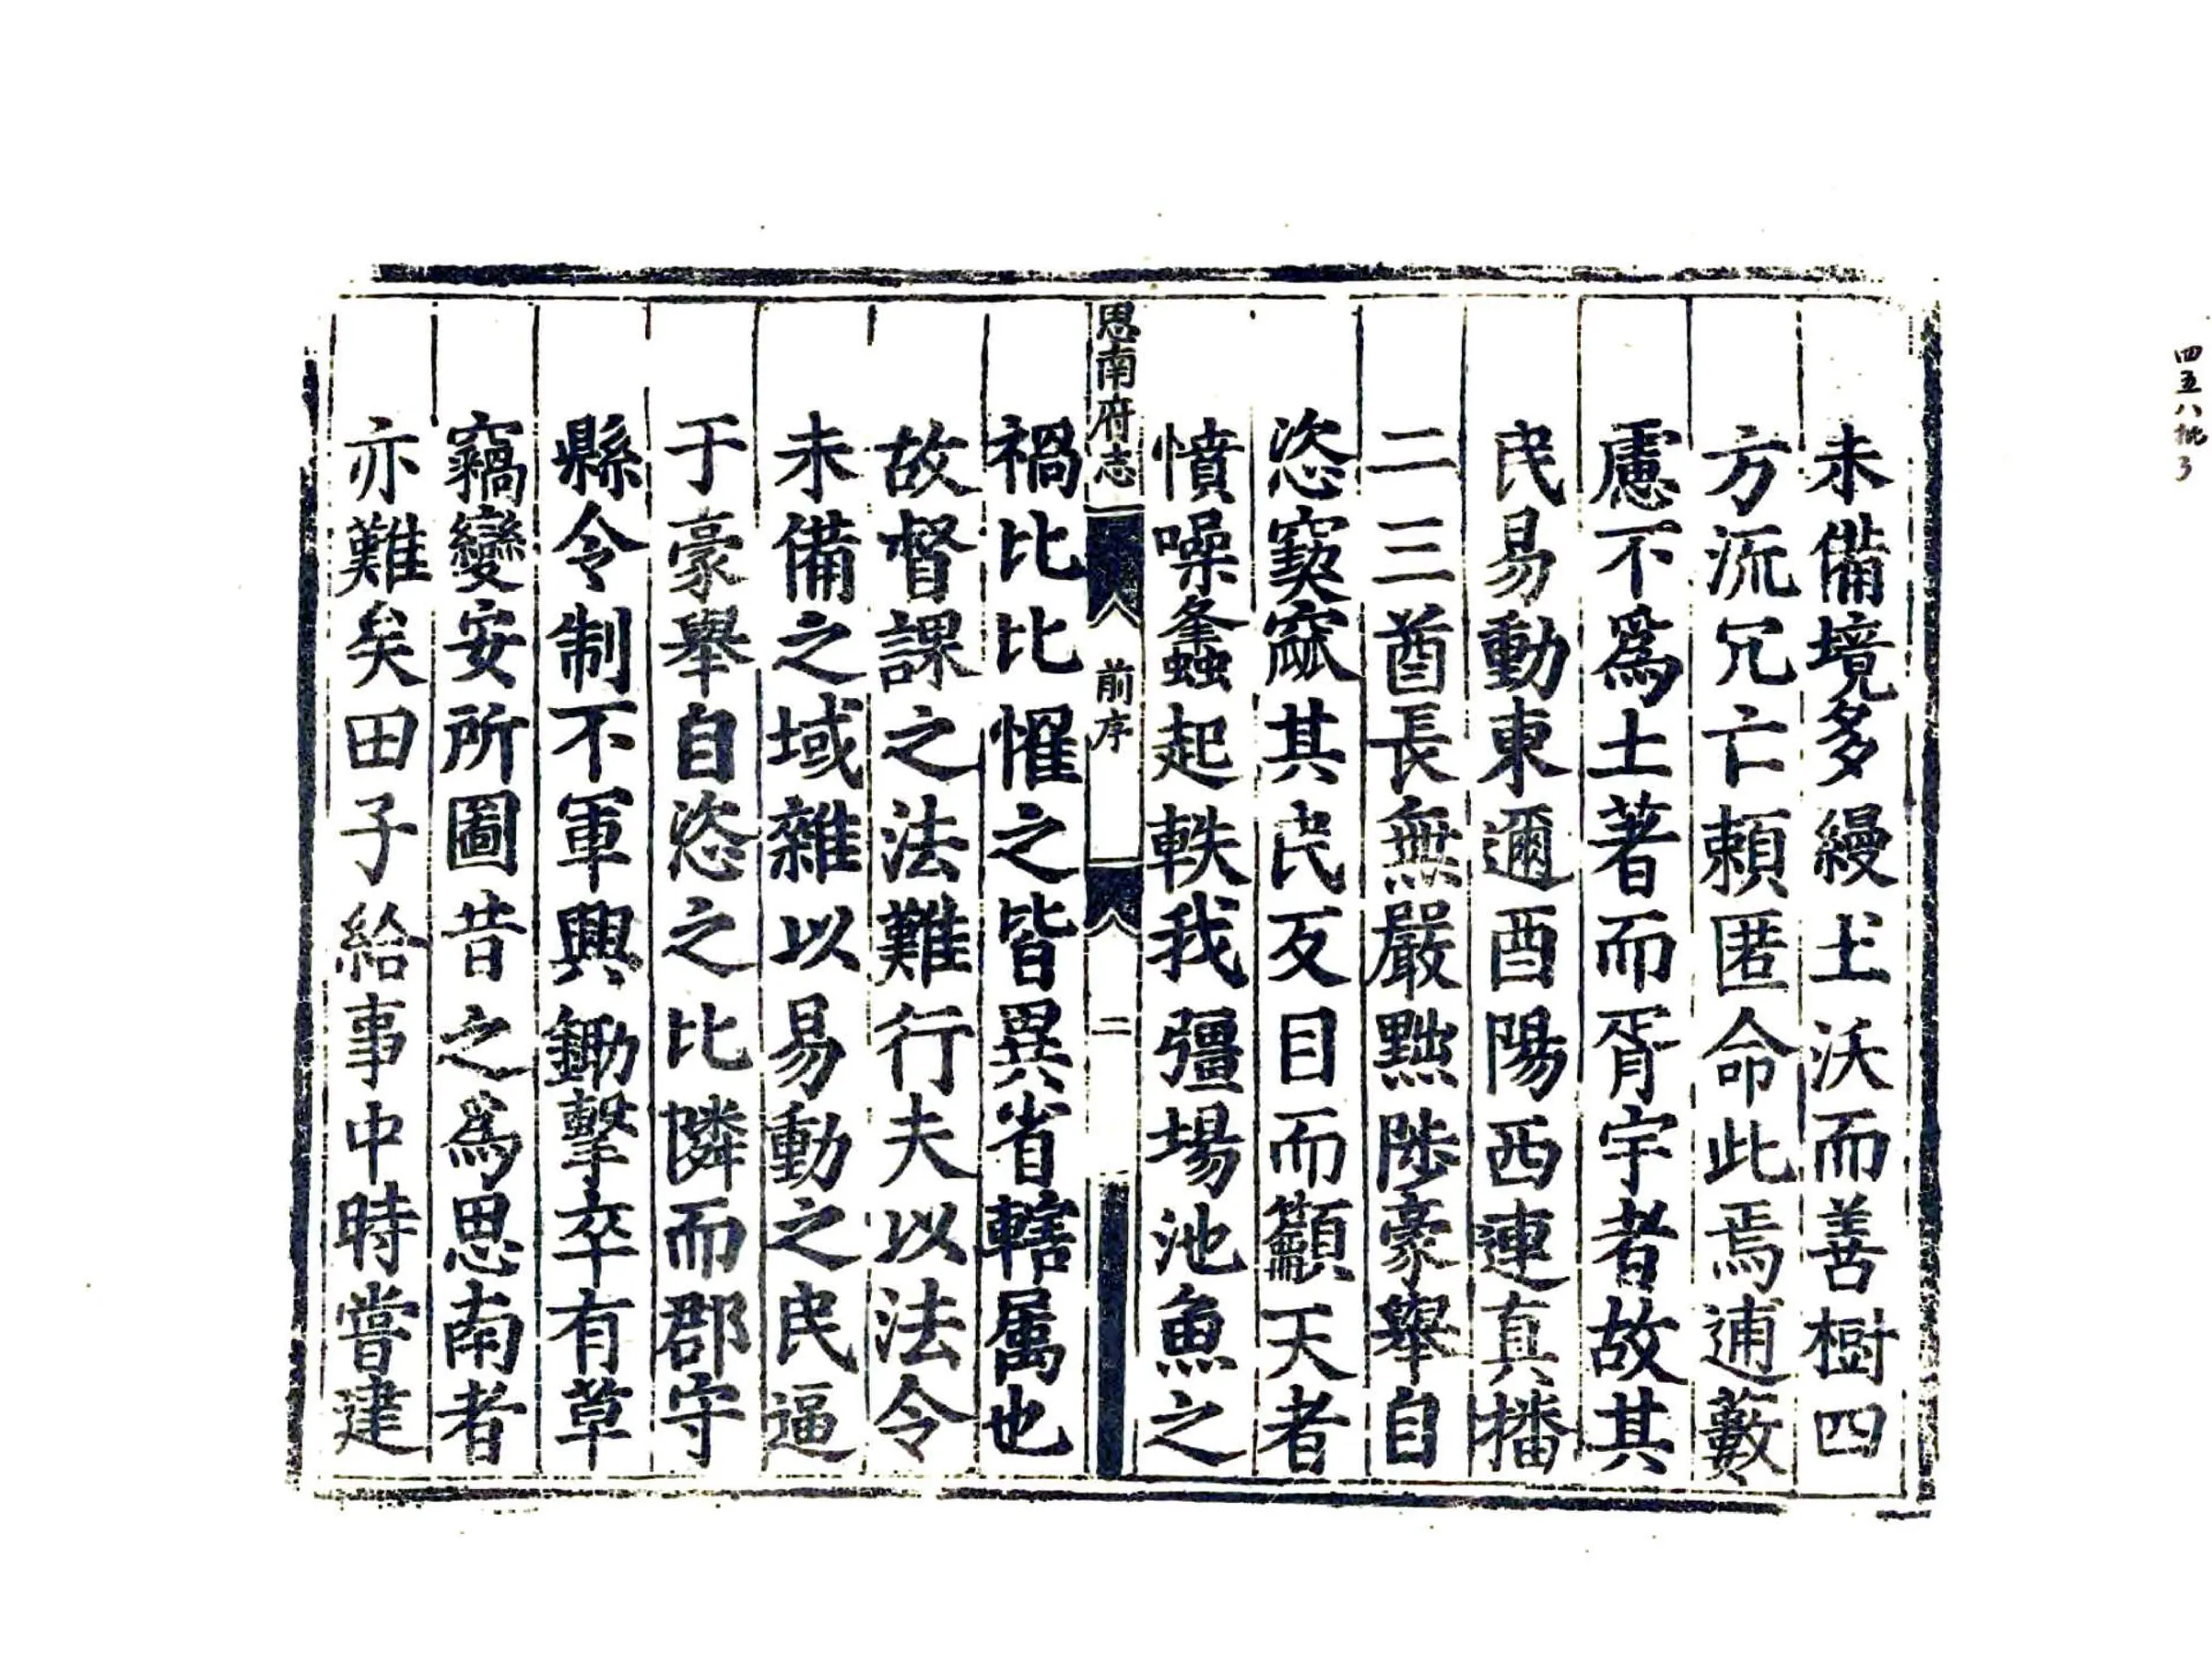 未備境多縵土沃而善樹四
方流冗亡賴匿命此焉逋藪
慮不爲土著而胥宇者故其
民易動東邇酉陽西連真播
二三酋長無嚴黜陟豪舉自
恣窫窳其民反目而籲天者
憤噪螽起軼我彊場池魚之
思南府志
前序
二
禍比比惟之皆異省轄属也
故督課之法難行夫以法令
未備之域雜以易動之民逼
于豪舉自恣之比隣而郡守
縣令制不軍興鋤擊卒有草
竊變安所圖昔之爲思南者
亦難矣田子給事中時嘗建
四五八批